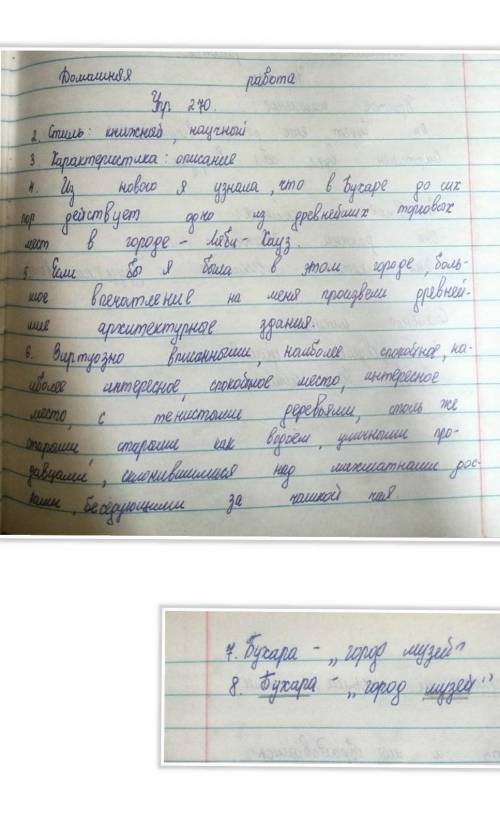 Домашняя работа
Упр 270.
2. Стиль: книжный, научный
3. Характеристика: описание
4. Из нового я узнала, что в Бухаре до сих
пор действует одно из древнейших торговых
мест в городе - Ляби-Хауз.
5. Если бы я была в этом городе, боль-
шое впечатление на меня произвели древней-
шие архитектурные здания.
6. Виртуозно вписанными, наиболее спокойное, на-
иболее интересное, спокойное место, интересное
место, с тенистыми деревьями, столь же
старыми старыми как водоём, уличными про-
давцами, склонившимися над шахматными дос-
ками, беседующими за чашкой чая
7. Бухара - „город музей"
8. Бухара - „город музей"